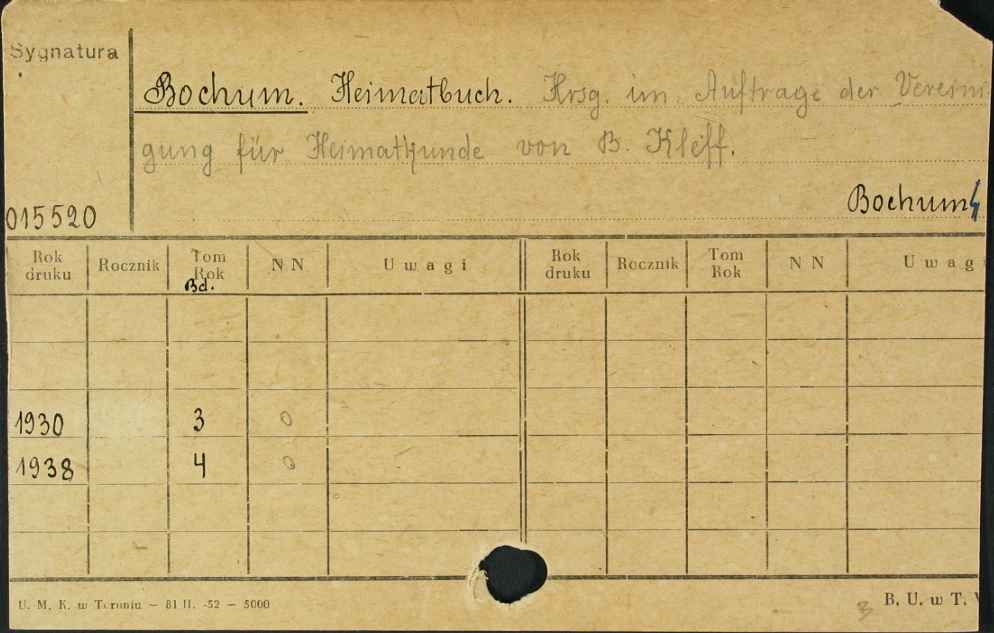 Sygnatura
Bochum. Heimatbuch. Hrsg. im Auftrage der Vereini-
gung für Heimatkunde von B. Kleff.
Bochum
015520
Rok druku Rocznik Tom Rok Bd. N N Uwagi Rok druku Rocznik Tom Rok N N Uwag
1930 3 0
1938 4 0
U. M. K. w Toruniu – 81 II. -52 – 5000
B. U. w T.